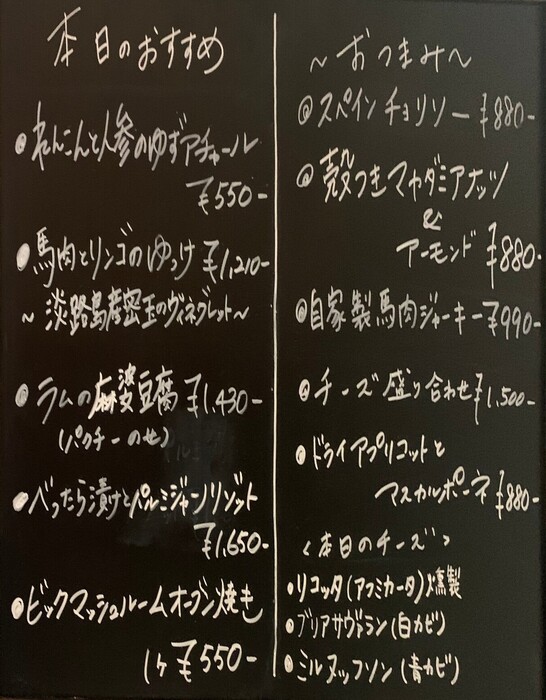 本日のおすすめ
●れんこんと人参のゆずアチャール
¥550-
●馬肉とリンゴのゆっけ ¥1,210-
~淡路島産蜜玉のヴィネグレット~
●ラムの麻婆豆腐 ¥1,430-
(パクチーのせ)
●べったら漬けとパルミジャーノリゾット
¥1,650-
●ビックマッシュルームオーブン焼き
1ケ ¥550-
~おつまみ~
●スペインチョリソー ¥880-
●殻つきマカダミアナッツ
&
アーモンド ¥880-
●自家製馬肉ジャーキー ¥990-
●チーズ盛り合わせ ¥1,500-
●ドライアプリコットと
マスカルポーネ ¥880-
<本日のチーズ>
●リコッタ(アフミカータ)燻製
●ブリアサヴァラン(白カビ)
●ミルヌッフソン(青カビ)